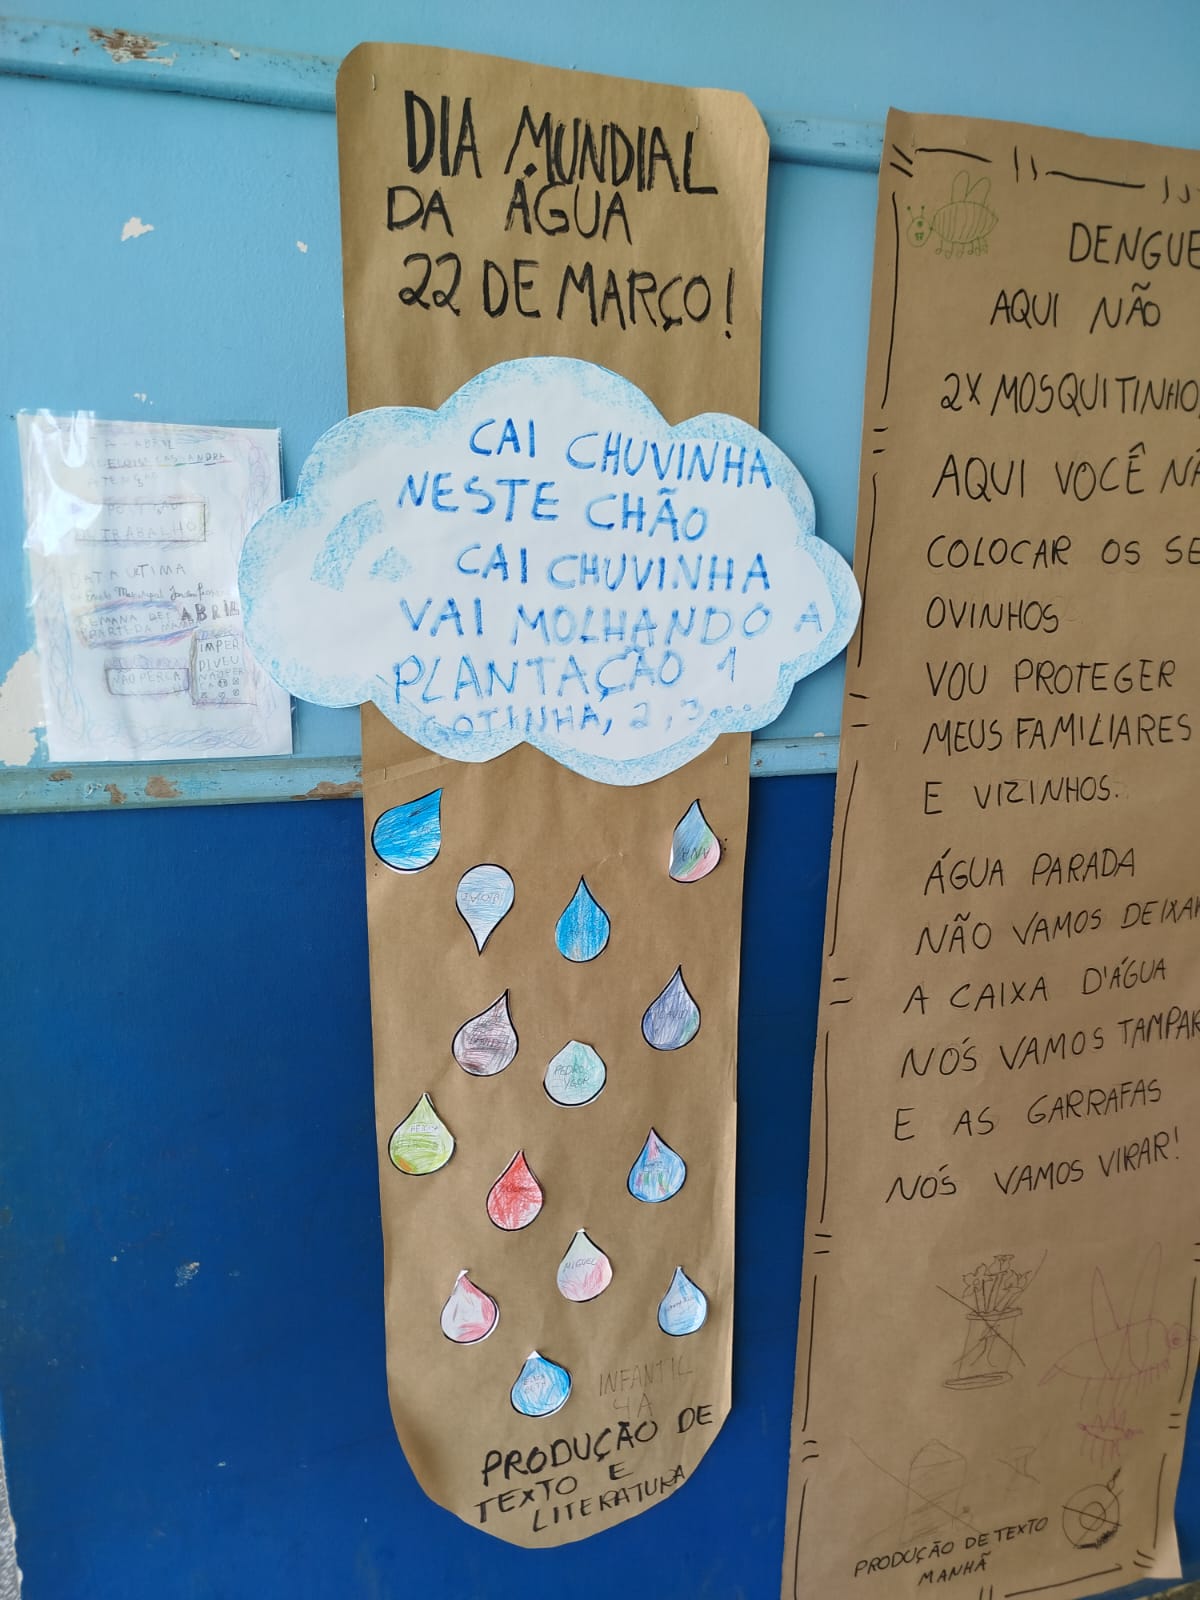 DIA MUNDIAL
DA ÁGUA
22 DE MARÇO!
CAI CHUVINHA
NESTE CHÃO
CAI CHUVINHA
VAI MOLHANDO A
PLANTAÇÃO 1
GOTINHA, 2, 3...
ANA
DAVID
PEDRO
YGOR
MIGUEL
INFANTIL
4A
PRODUÇÃO DE
TEXTO E
LITERATURA
DENGUE
AQUI NÃO
2X MOSQUITINHO
AQUI VOCÊ NÃ
COLOCAR OS SE
OVINHOS
VOU PROTEGER
MEUS FAMILIARES
E VIZINHOS.
ÁGUA PARADA
NÃO VAMOS DEIXAR
A CAIXA D'ÁGUA
NÓS VAMOS TAMPAR
E AS GARRAFAS
NÓS VAMOS VIRAR!
PRODUÇÃO DE TEXTO
MANHÃ
TRABALHO
DATA ULTIMA
ABRIL
NÃO PERCA